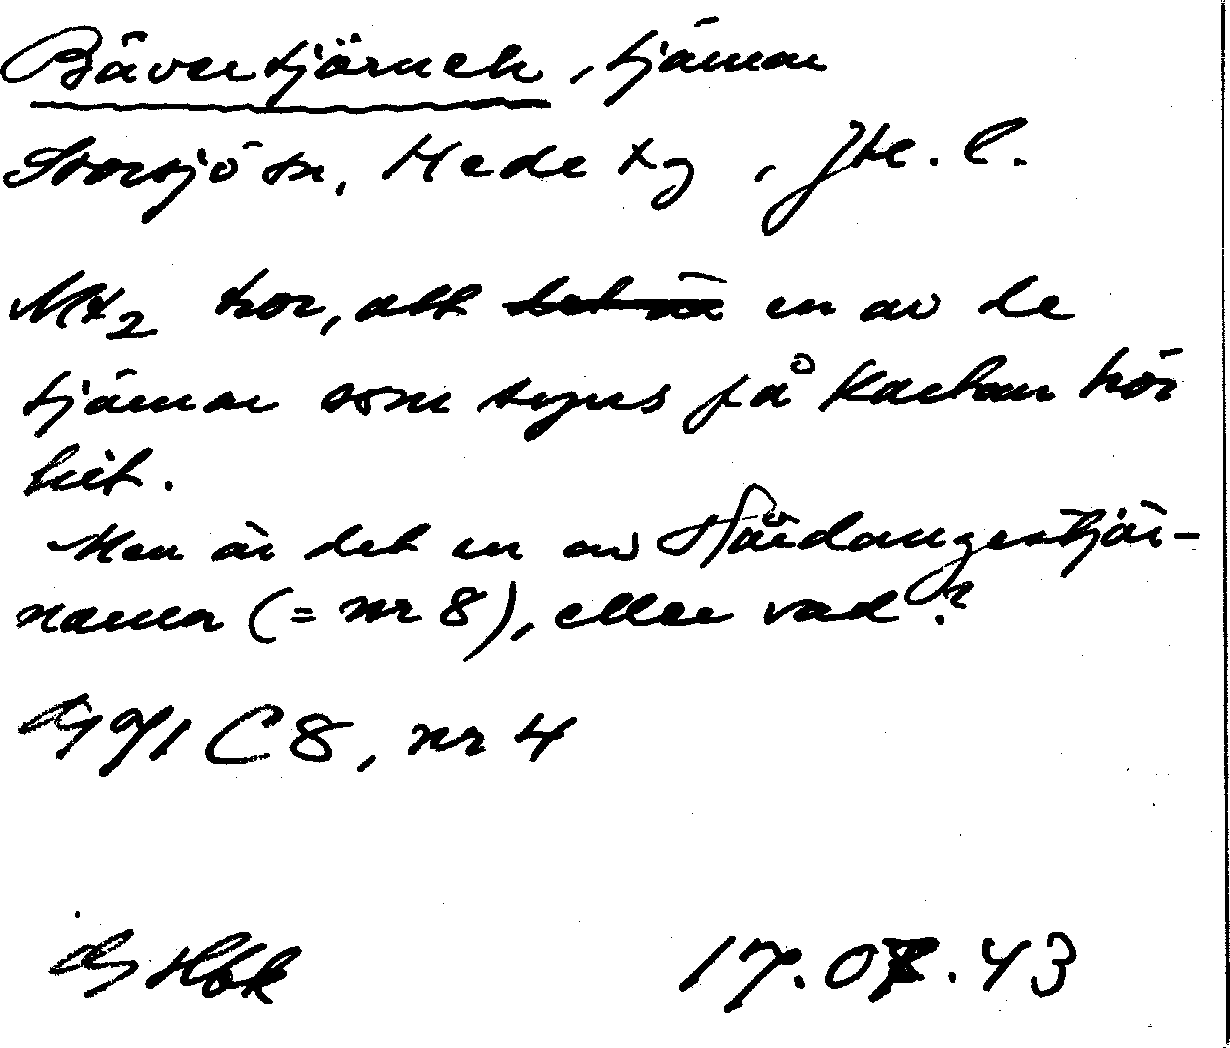 Bävertjärnen, tjärnar
Storsjö sn, Hede tg, Jtl. l.
Mt2 tror, att det är en av de
tjärnar som synes på kartan hör
hit.
Men är det en av Härdangestjär-
narna (= nr 8), eller vad?
C8, nr 4
17.07.43